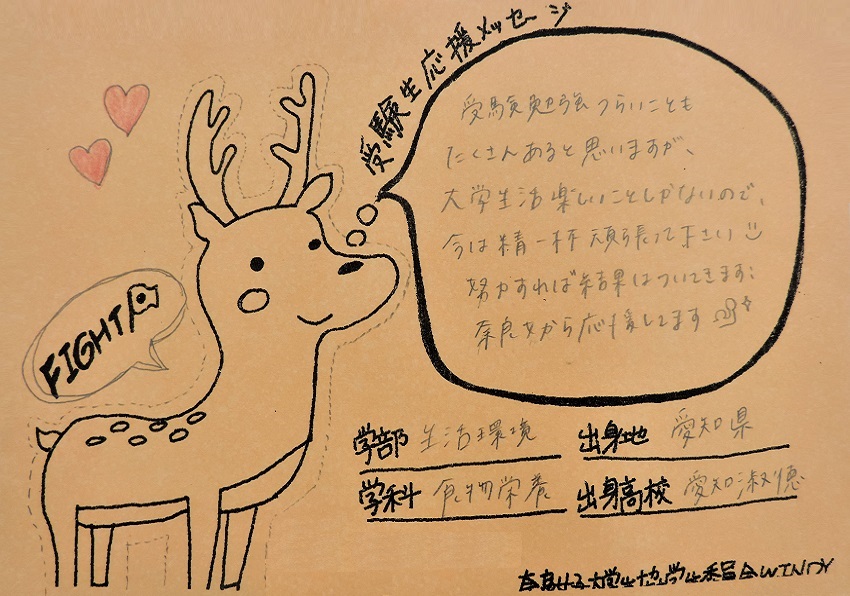 受験生応援メッセージ
受験勉強つらいことも
たくさんあると思いますが、
大学生活楽しいことしかないので、
今は精一杯頑張って下さい
努力すれば結果はついてきます
奈良女から応援してます
FIGHT
学部 生活環境
出身地 愛知県
学科 食物栄養
出身高校 愛知淑徳
奈良女子大学生協学生委員会WINDY